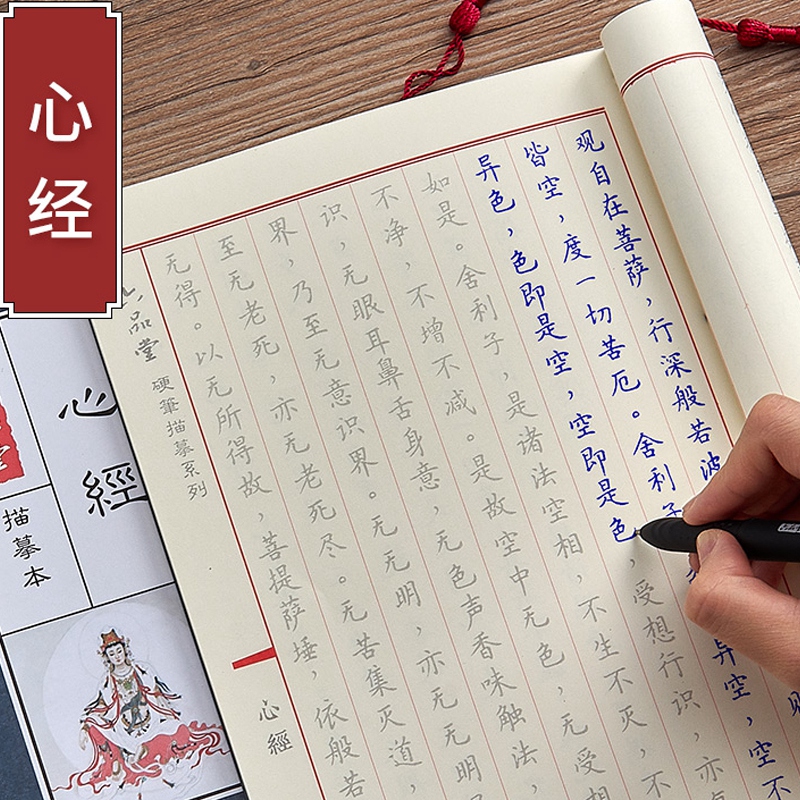 心经
观自在菩萨，行深般若波
皆空，度一切苦厄。舍利子
异空，空不
异色，色即是空，空即是色，受想行识，亦
如是。舍利子，是诸法空相，不生不灭，不
不净，不增不减。是故空中无色，无受想
识，无眼耳鼻舌身意，无色声香味触法，
界，乃至无意识界。无无明，亦无无明
至无老死，亦无老死尽。无苦集灭道，
无得。以无所得故，菩提萨埵，依般若
品堂
硬筆描摹系列
心經
心經
描摹本